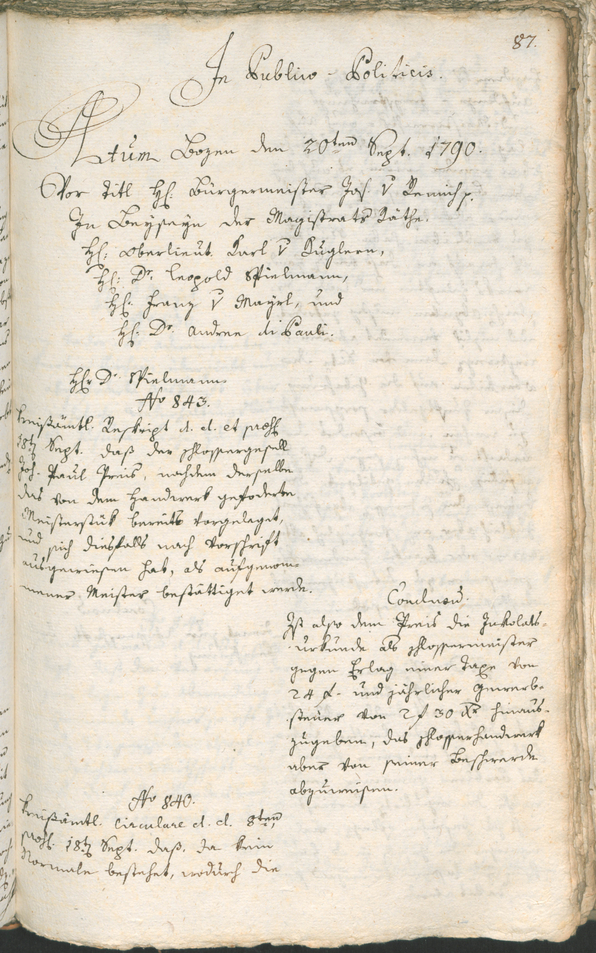 87.
In Publico-Politicis.
Actum Bozen den 20ten Sept. 1790.
Vor Titl H: Bürgermeister Jos: v Remich p.
In Beyseyn der Magistrats Räthe.
H: Oberlieut. Karl v Kugleen,
H: Dr. Leopold Spielmann,
H: Franz v Mayrl, und
H: Dr. Andree di Pauli.
Hr Dr. Spielmann
No 843.
Kreißämtl. Reskript d. d. et
18t Sept. daß der Schlossergesell
Joh. Paul Preis, nachdem derselbe
das von dem Handwerk geforderte
Meisterstük bereits vorgelaget,
und sich diesfalls nach Vorschrift
ausgewiesen hat, als aufgenom-
mener Meister bestättiget werde.
Conclusum.
Ist also dem Preis die Inkolats-
urkunde als Schlossermeister
gegen Erlag einer Taxe von
24 f. und jährlicher Gewerb-
steuer von 2 f 30 Xr hinaus-
zugeben, das Schlosserhandwerk
aber von seiner Beschwerde
abzuweisen.
No 840.
Kreißämtl. Circulare d. d. 8ten
18t Sept. daß, da kein
Normale bestehet, wodurch die